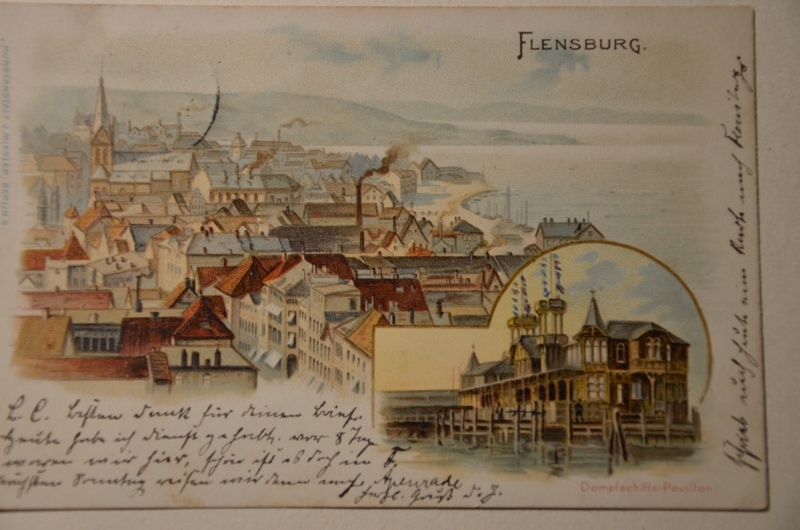 FLENSBURG.
KUNSTANSTALT J. MIESLER, BERLIN S.
L. C. Besten Dank für deinen Brief.
Heute habe ich Dienst gehabt. vor 8 Tag
waren wir hier, schön ist es doch in F
nächsten Sonntag reisen wir dann nach Apenrade
Herzl. Gruß d. J.
Dampfschiffs-Pavillon
Schreib auch heute um Karte nach